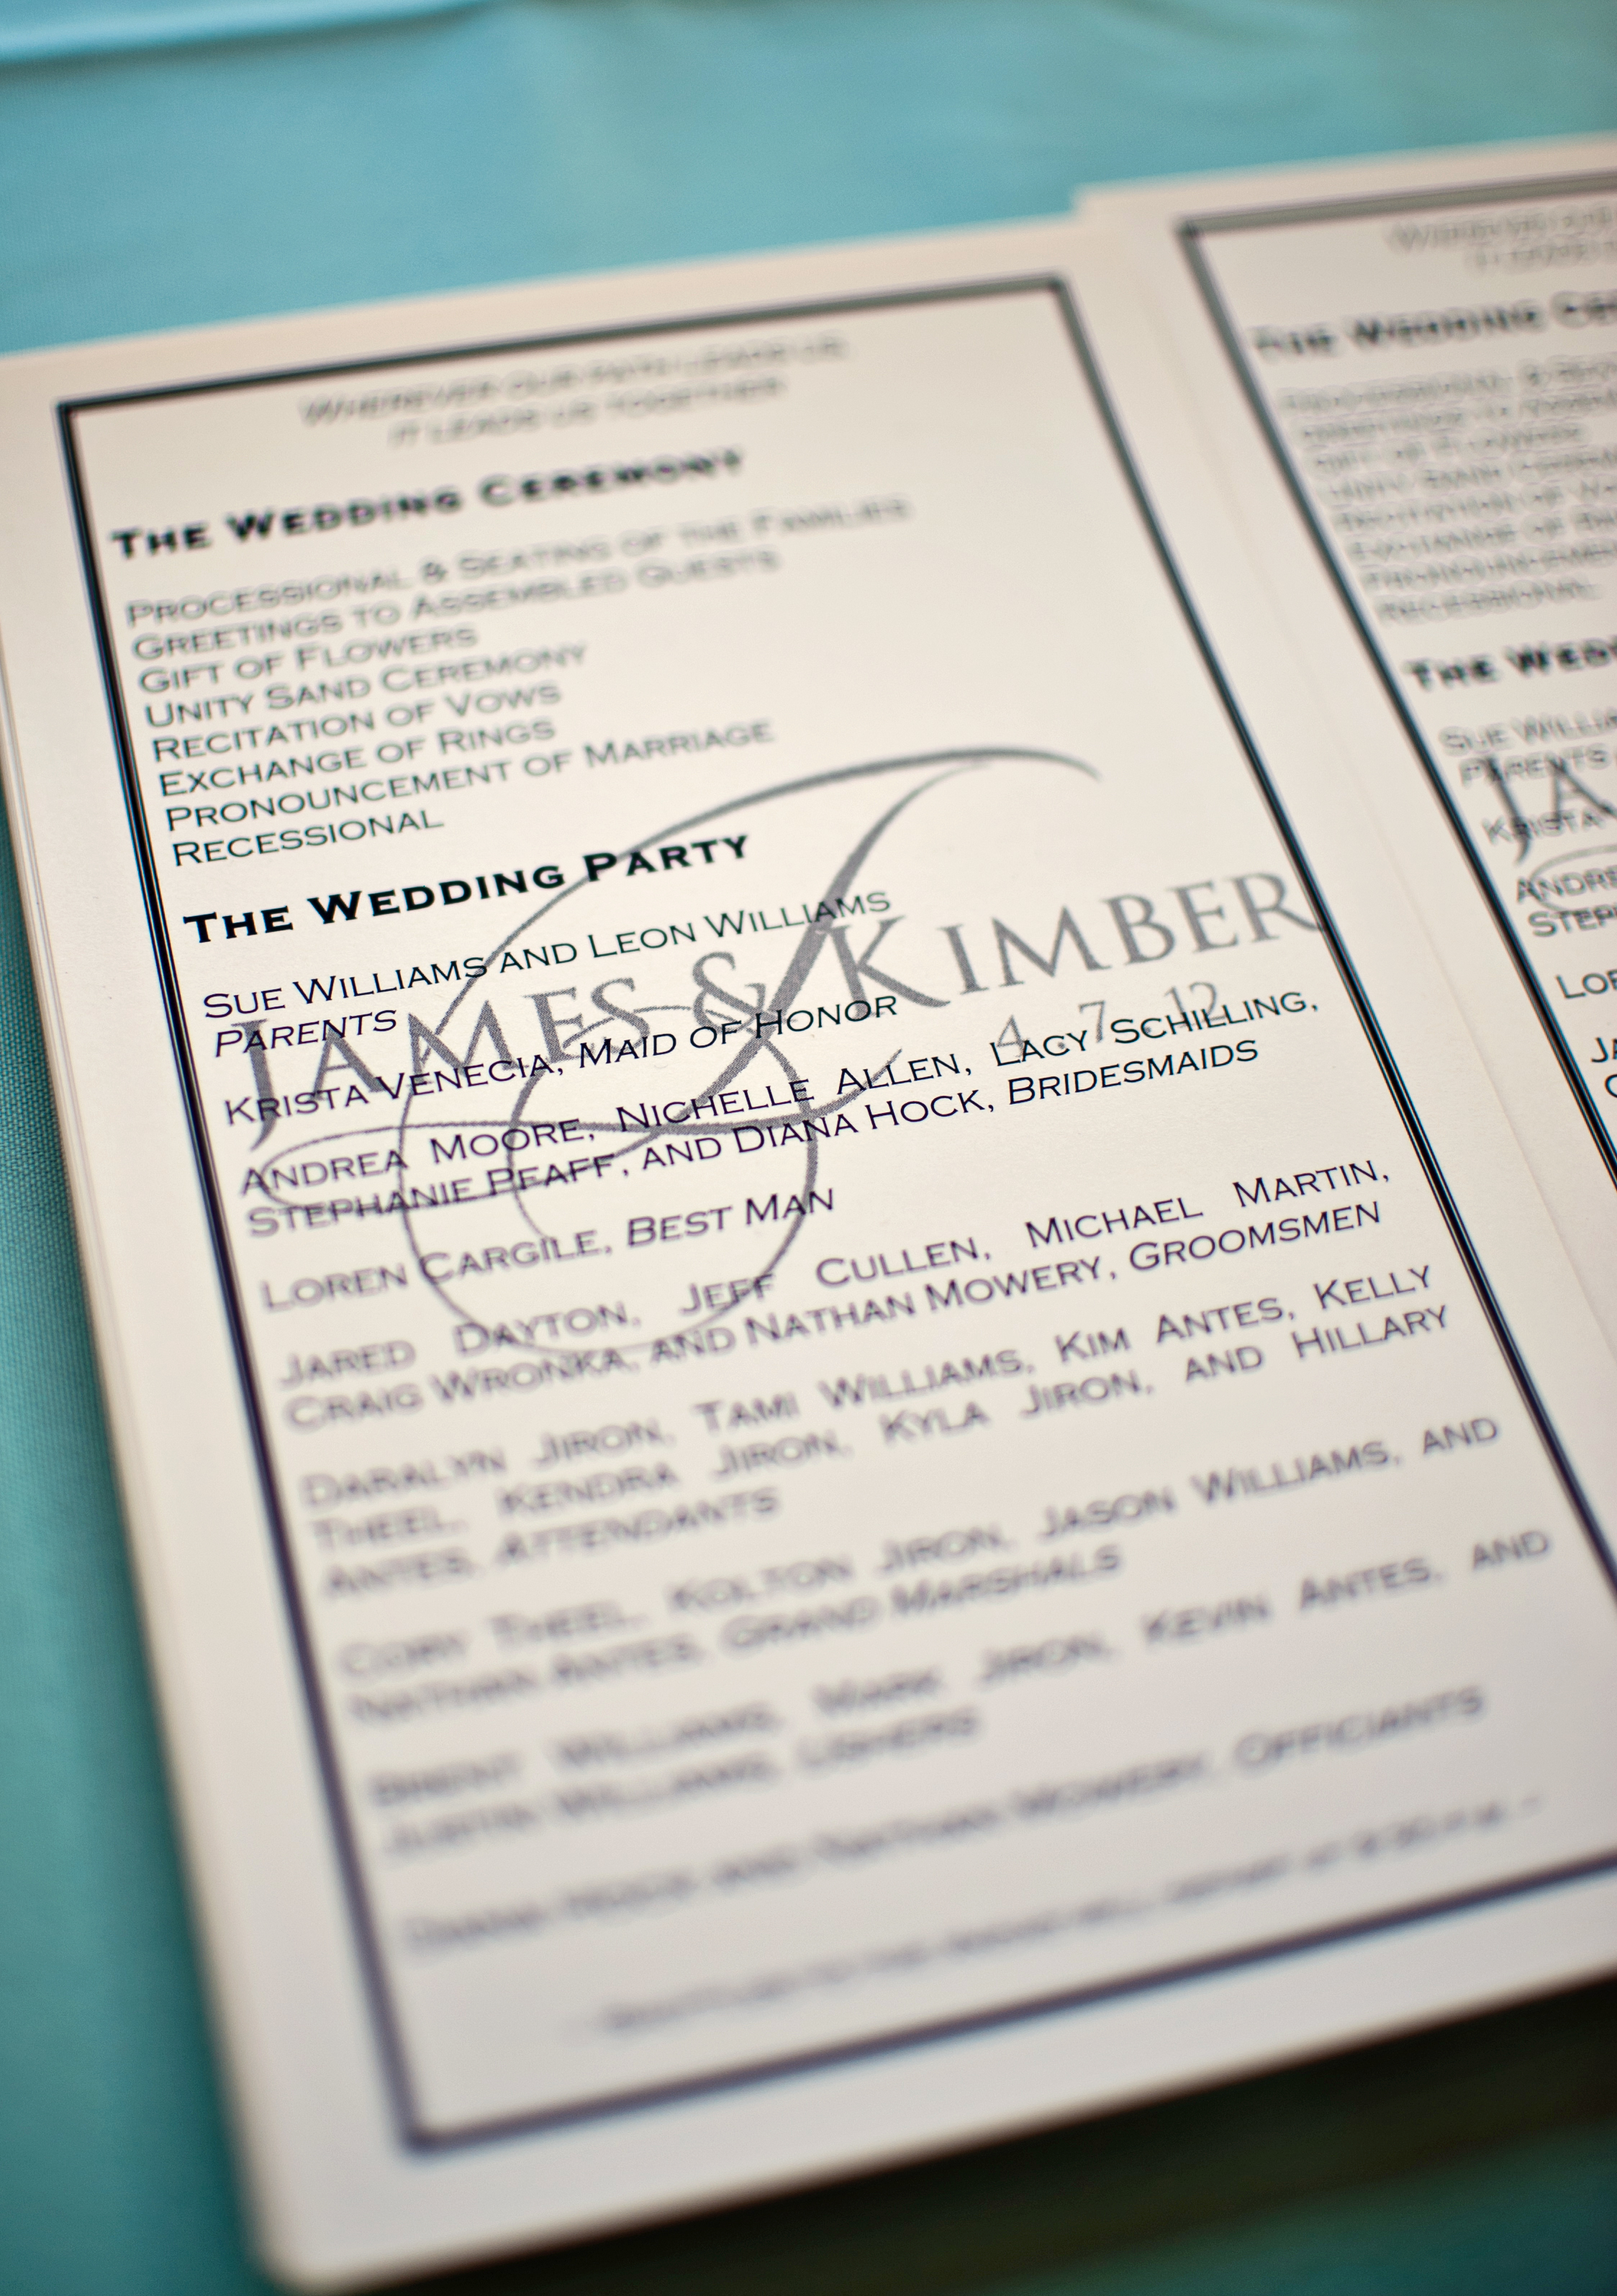 WHEREVER OUR PATH LEADS US
IT LEADS US TOGETHER
THE WEDDING CEREMONY
PROCESSIONAL & SEATING OF THE FAMILIES
GREETINGS TO ASSEMBLED GUESTS
GIFT OF FLOWERS
UNITY SAND CEREMONY
RECITATION OF VOWS
EXCHANGE OF RINGS
PRONOUNCEMENT OF MARRIAGE
RECESSIONAL
THE WEDDING PARTY
SUE WILLIAMS AND LEON WILLIAMS
PARENTS
JAMES & KIMBER
4.7.12
KRISTA VENECIA, MAID OF HONOR
ANDREA MOORE, NICHELLE ALLEN, LACY SCHILLING,
STEPHANIE PFAFF, AND DIANA HOCK, BRIDESMAIDS
LOREN CARGILE, BEST MAN
JARED DAYTON, JEFF CULLEN, MICHAEL MARTIN,
CRAIG WRONKA, AND NATHAN MOWERY, GROOMSMEN
DARALYN JIRON, TAMI WILLIAMS, KIM ANTES, KELLY
THEEL, KENDRA JIRON, KYLA JIRON, AND HILLARY
ANTES, ATTENDANTS
CORY THEEL, KOLTON JIRON, JASON WILLIAMS, AND
NATHAN ANTES, GRAND MARSHALS
BRENT WILLIAMS, MARK JIRON, KEVIN ANTES, AND
JUSTIN WILLIAMS, USHERS
DIANA HOCK AND NATHAN MOWERY, OFFICIANTS
THE WEDDING CE
THE WED
SUE WILLIA
PARENTS
JA
KRISTA
ANDRE
STEP
LOR
JA
C